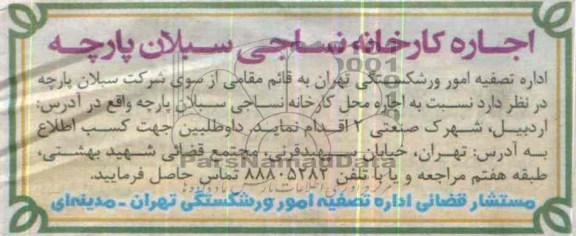 اجاره کارخانه نساجی سبلان پارچه
اداره تصفیه امور ورشکستگی تهران به قائم مقامی از سوی شرکت سبلان پارچه
در نظر دارد نسبت به اجاره محل کارخانه نساجی سبلان پارچه واقع در آدرس:
اردبیل، شهرک صنعتی ۲ اقدام نماید. داوطلبین جهت کسب اطلاع
به آدرس: تهران، خیابان سپهبدقرنی، مجتمع قضائی شهید بهشتی،
ParsNamadData
طبقه هفتم مراجعه و یا با تلفن ۸۸۸۰۵۲۸۲ تماس حاصل فرمایید.
مستشار قضائی اداره تصفیه امور ورشکستگی تهران ـ مدینه‌ای